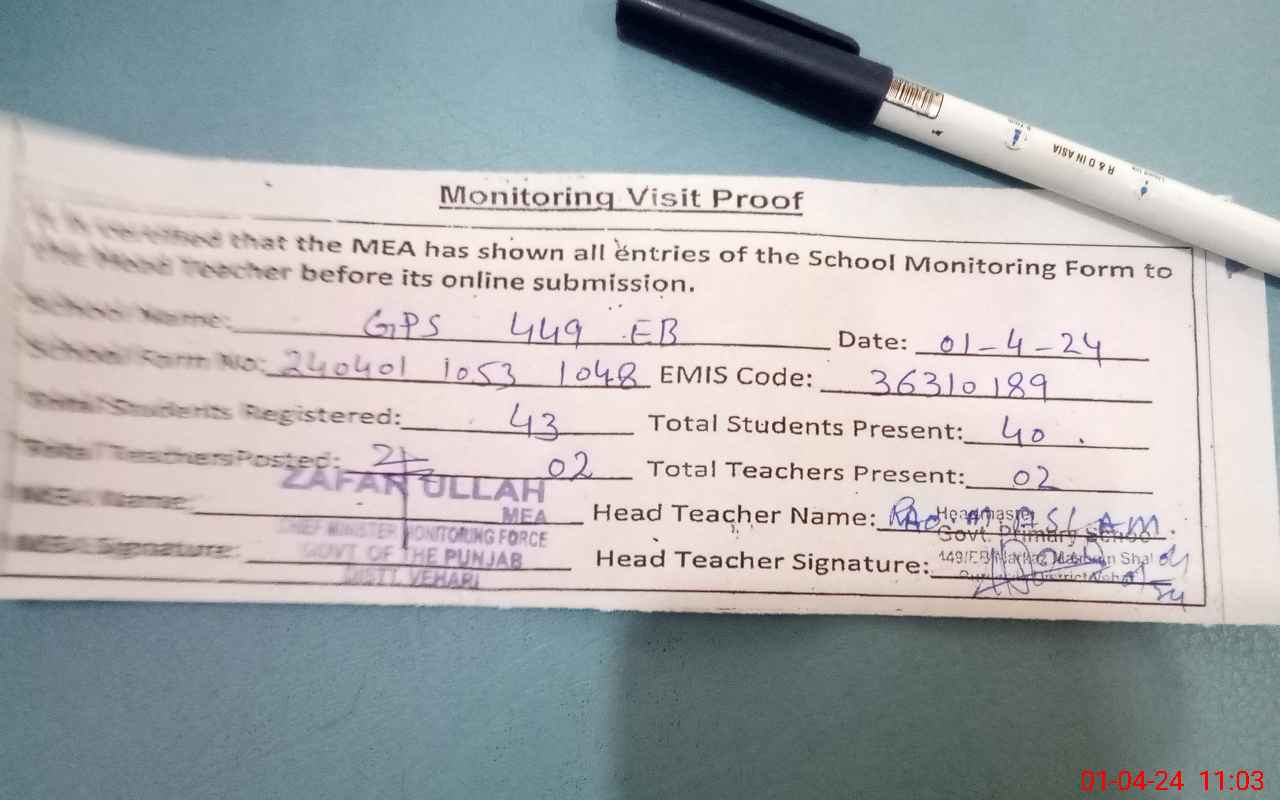 R & D IN ASIA
Monitoring Visit Proof
It is certified that the MEA has shown all entries of the School Monitoring Form to
the Head Teacher before its online submission.
School Name: GPS 449 EB Date: 01-4-24
School Form No: 240401 1053 1048 EMIS Code: 36310189
Total Students Registered: 43 Total Students Present: 40
Total Teachers Posted: 02 Total Teachers Present: 02
ZAFAR ULLAH
MEA
CHIEF MINISTER MONITORING FORCE
GOVT OF THE PUNJAB
DISTT. VEHARI
MEA Name: Head Teacher Name:
Headmaster
Govt. Primary School
449/EB
MEA Signature: Head Teacher Signature:
01-04-24 11:03